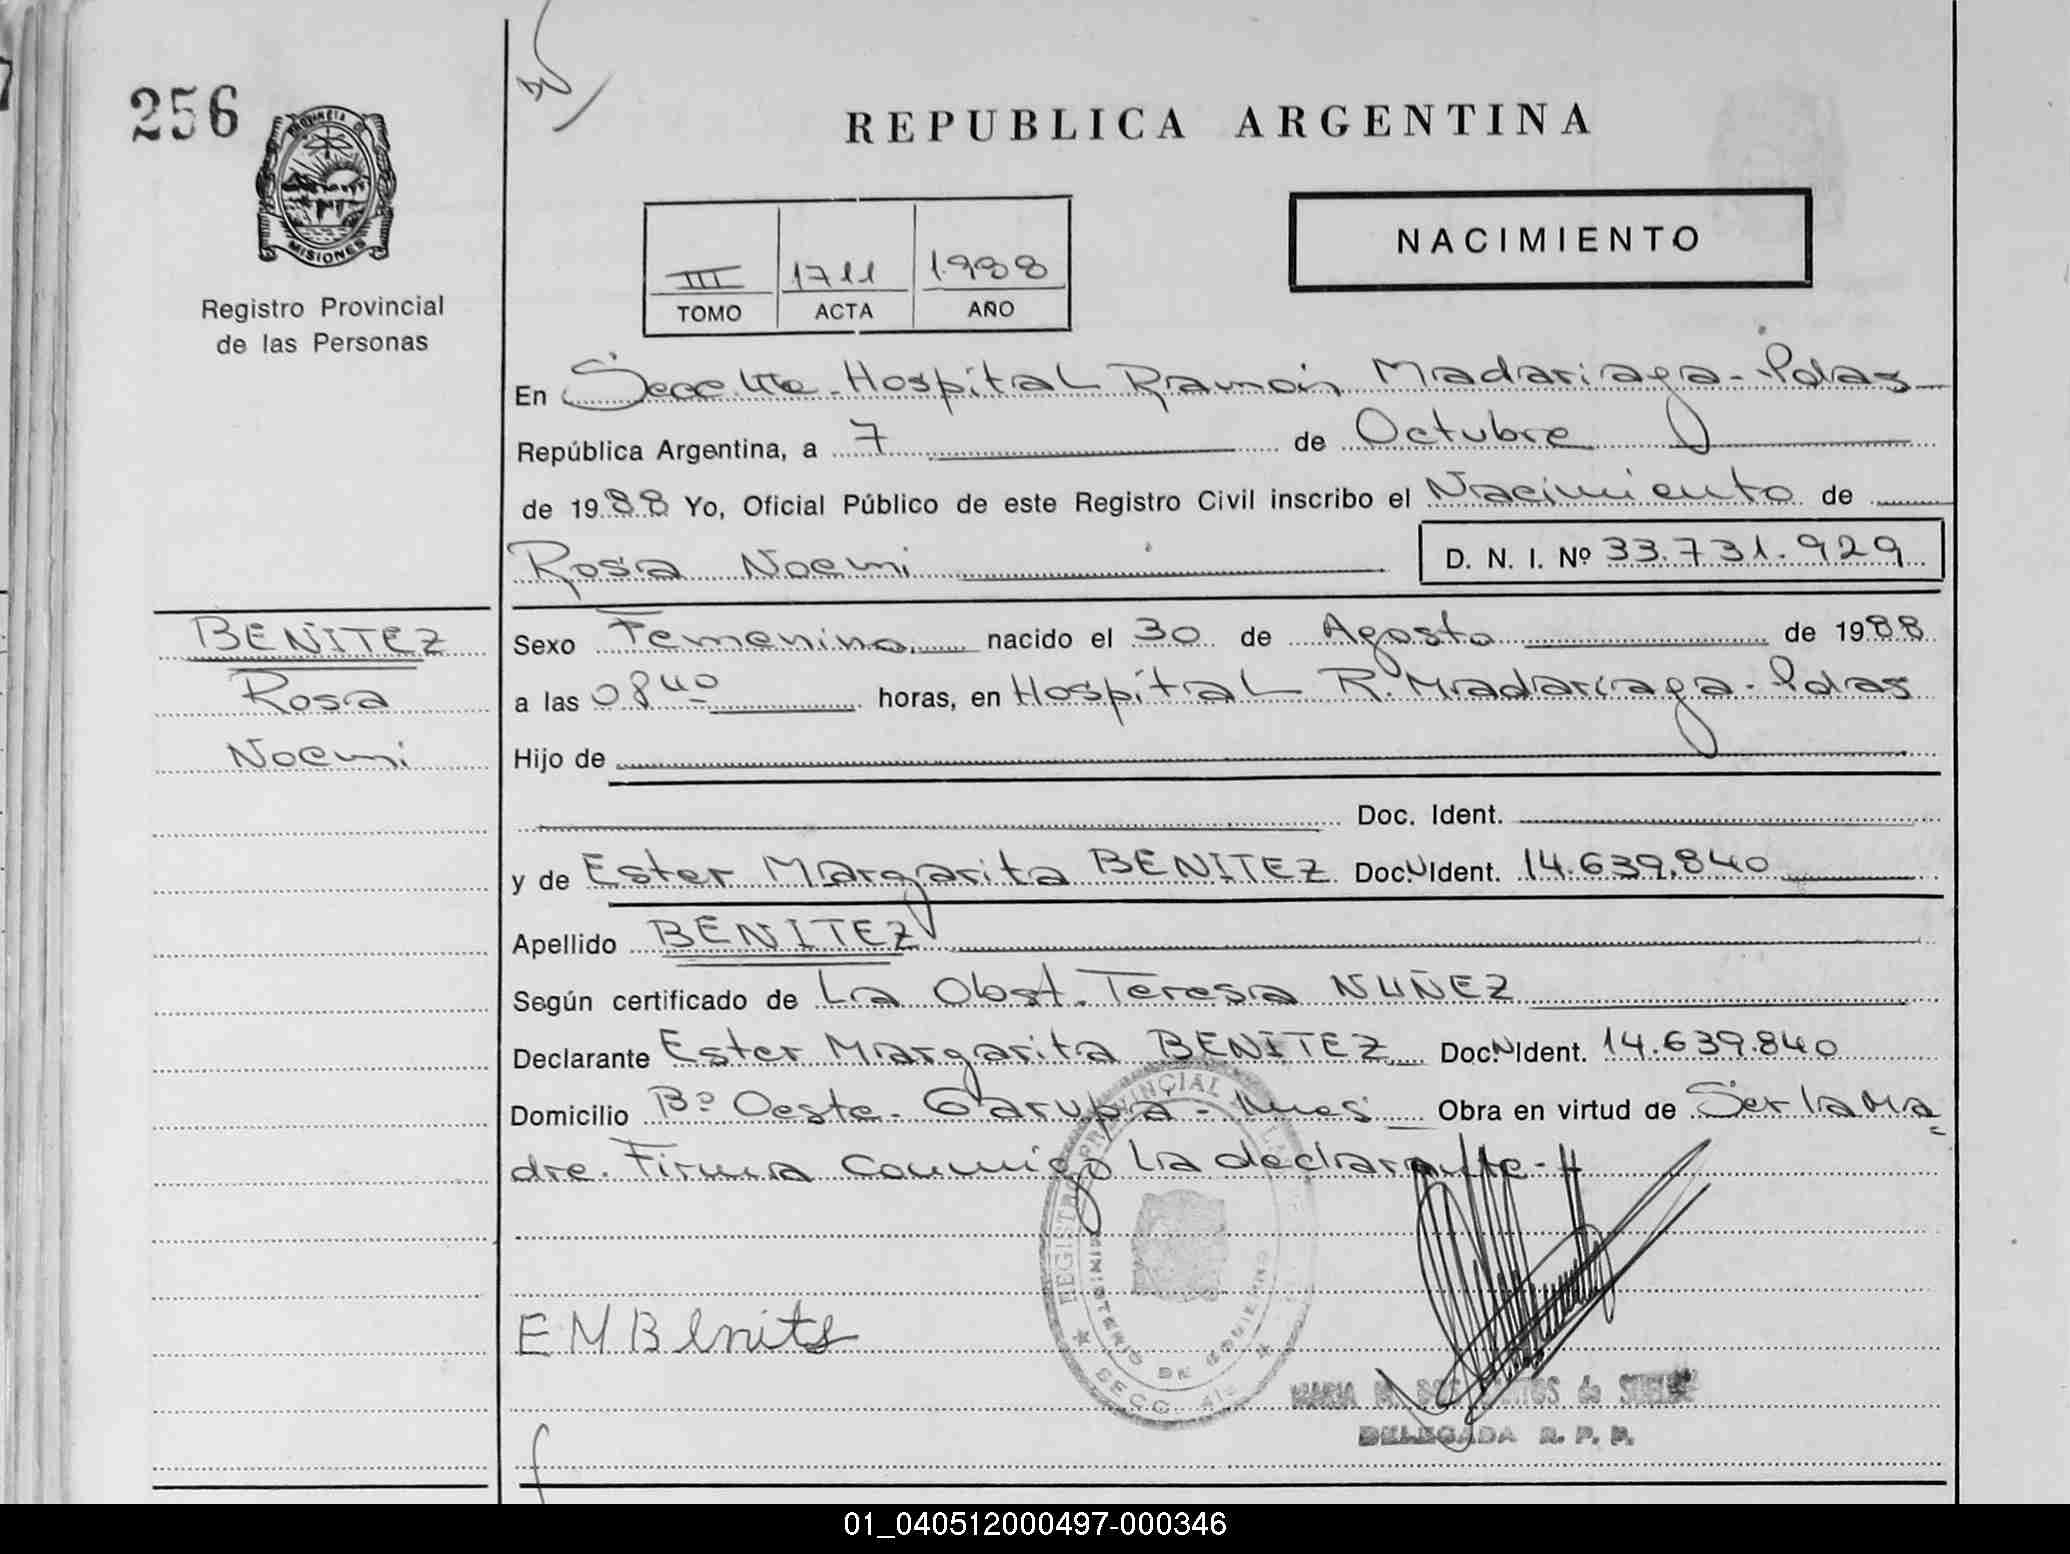 256
PROVINCIA DE
MISIONES
Registro Provincial
de las Personas
REPUBLICA ARGENTINA
NACIMIENTO
III 1711 1988
TOMO ACTA AÑO
En Secc. Hospital Ramón Madariaga - Pdas
República Argentina, a 7 de Octubre
de 1988 Yo, Oficial Público de este Registro Civil inscribo el Nacimiento de
Rosa Noemi D. N. I. Nº 33.731.929
BENITEZ
Rosa
Noemi
Sexo Femenino nacido el 30 de Agosto de 1988
a las 08 40 horas, en Hospital R. Madariaga - Pdas
Hijo de
Doc. Ident.
y de Ester Margarita BENITEZ Doc. N Ident. 14.639.840
Apellido BENITEZ
Según certificado de La Obst. Teresa NUÑEZ
Declarante Ester Margarita BENITEZ Doc. N Ident. 14.639.840
Domicilio Bº Oeste - Garupa - Mnes Obra en virtud de Ser la Ma
dre. Firma conmigo la declarante -
REGISTRO PROVINCIAL
MINISTERIO DE GOBIERNO
SECC. 4ta
E M Benits
MARIA de
DELEGADA R. P. P.
01_040512000497-000346